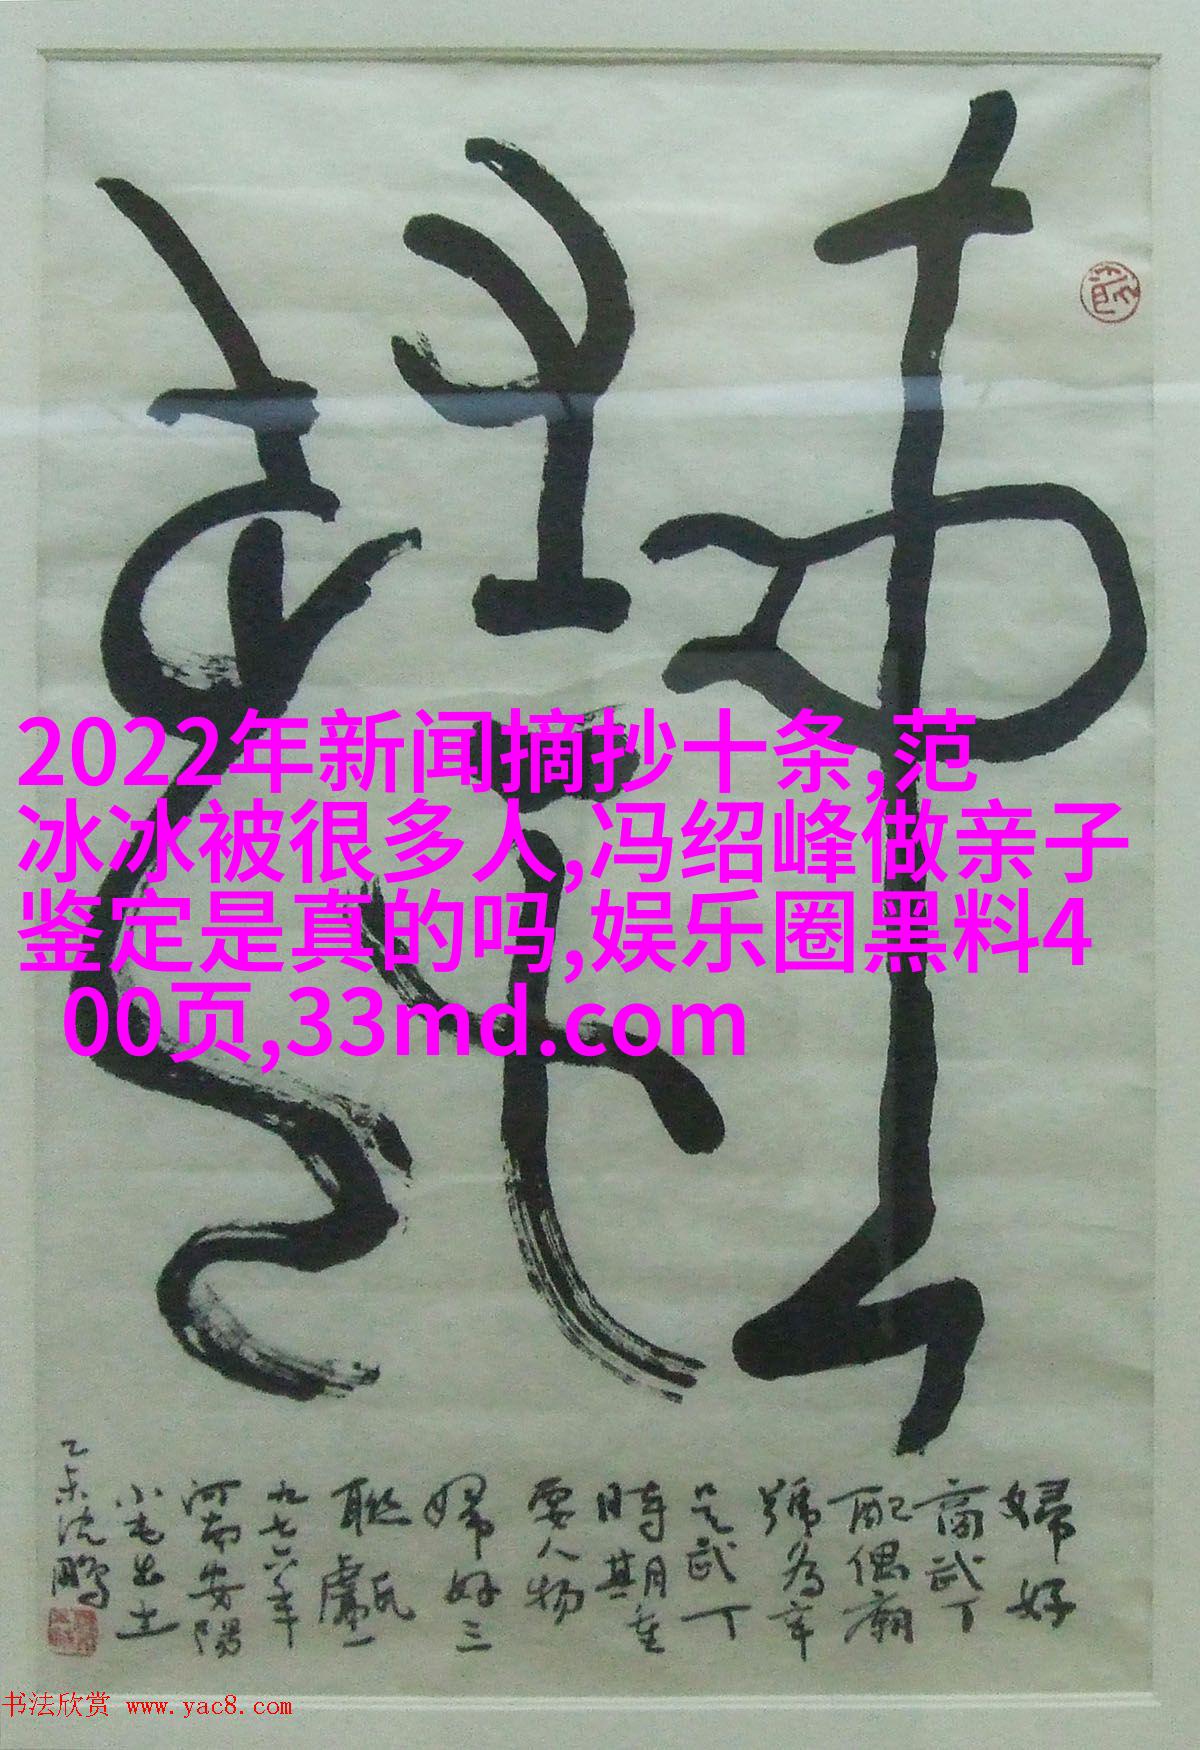 2022年新闻摘抄十条,范
冰冰被很多人,冯绍峰做亲子
鉴定是真的吗,娱乐圈黑料4
00页,33md.com
婦好
商武丁
配偶廟
號为辛
是武丁
時期重
要人物
婦好三
聯甗一
九七六年
河南安陽
小屯出土
乙未沈鵬
书法欣赏 www.yac8.com